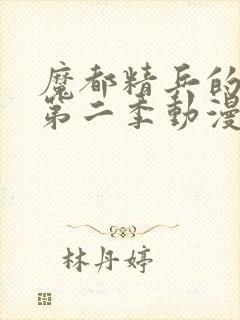 魔都精兵的
第二季動漫
林丹婷